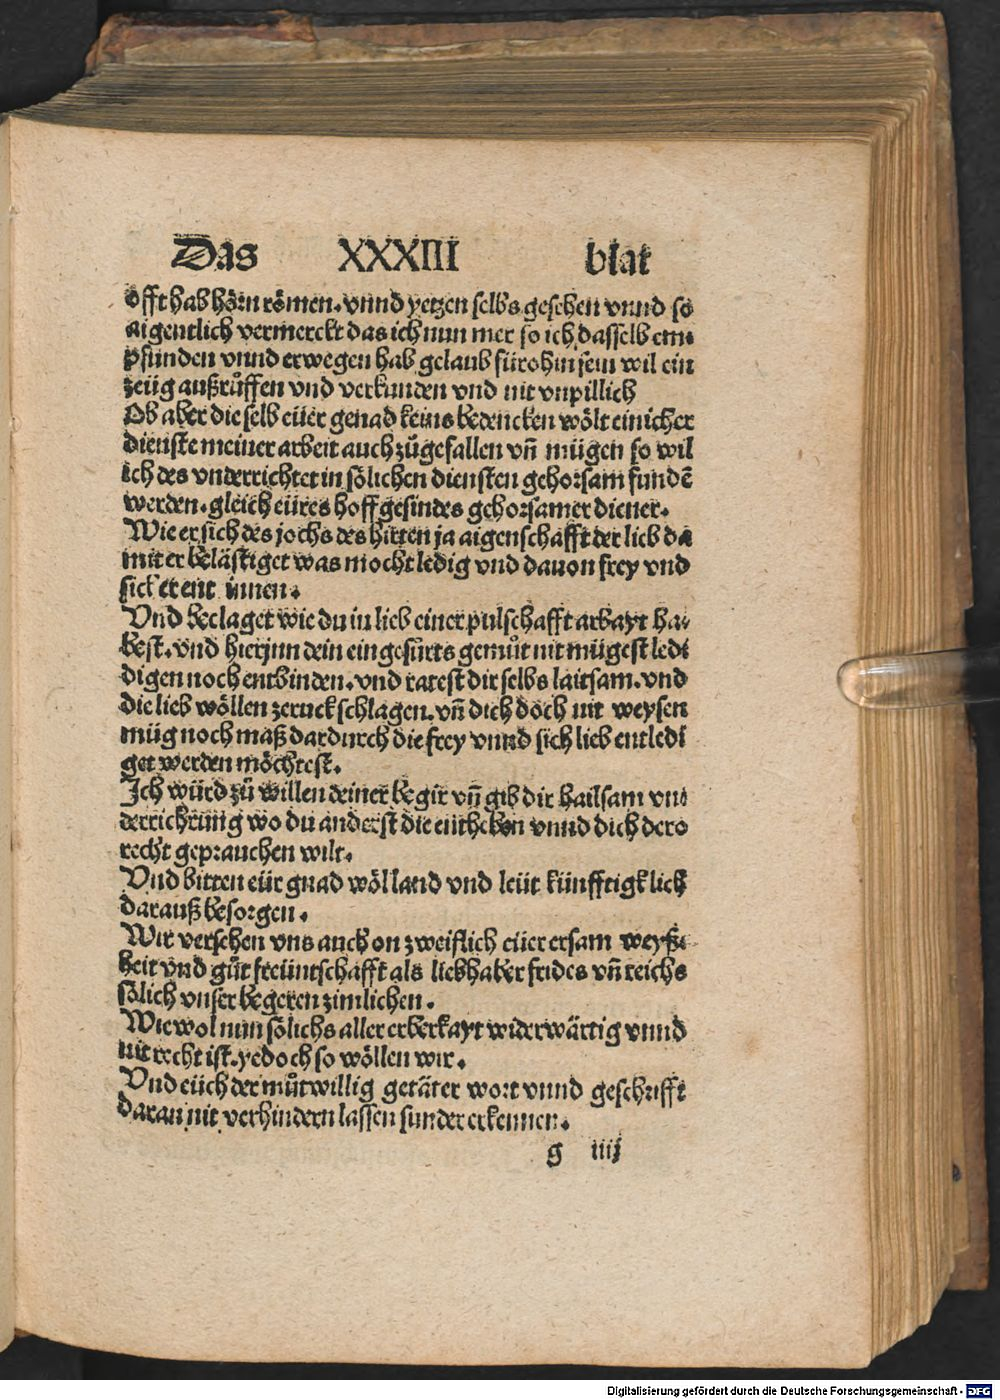 Das XXXIII blat
offt hab hörn römen. vnnd yetzen selbs gesehen vnnd so
aigentlich vermerckt das ich nun mer so ich dasselb em⸗
pfunden vnnd erwegen hab gelaub fürohin sein wil ein
zeüg außrůffen vnd verkunden vnd nit vnpillich
Ob aber die selb eüer genad keins bedencken wölt einicher
dienste meiner arbeit auch zůgefallen vñ mügen so wil
ich des vnderrichtet in sölichen diensten gehorsam fundē
werden. gleich eüres hoffgesindes gehorsamer diener.
Wie er sich des jochs des hirten ja aigenschafft der lieb da
mit er belästiget was mocht ledig vnd dauon frey vnd
sicker ent innen.
Vnd beclaget wie du in lieb einer pulschafft arbayt ha⸗
best. vnd hierjnn dein eingefürts gemůt nit mügest ledi
digen noch entbinden. vnd ratest dir selbs laitsam. vnd
die lieb wöllen zeruck schlagen. vñ dich doch nit weysen
müg noch maß dardurch die frey vnnd sich lieb entledi
get werden möchtest.
Ich würd zů willen deiner begir vñ gib dir hailsam vn⸗
derrichtung wo du anderst die entheben vnnd dich dero
recht geprauchen wilt.
Vnd bitten eür gnad wöl land vnd leüt künfftigklich
darauß besorgen.
Wir versehen vns auch on zweiflich eüer ersam weyß⸗
heit vnd gůt freüntschafft als liebhaber frides vñ reichs
sölich vnser begeren zimlichen.
Wiewol nun sölichs aller erberkayt widerwärtig vnnd
nit recht ist. yedoch so wöllen wir.
Vnd eüch der můtwillig getäter wort vnnd geschrifft
daran nit verhindern lassen sunder erkennen.
g iiij
Digitalisierung gefördert durch die Deutsche Forschungsgemeinschaft - DFG